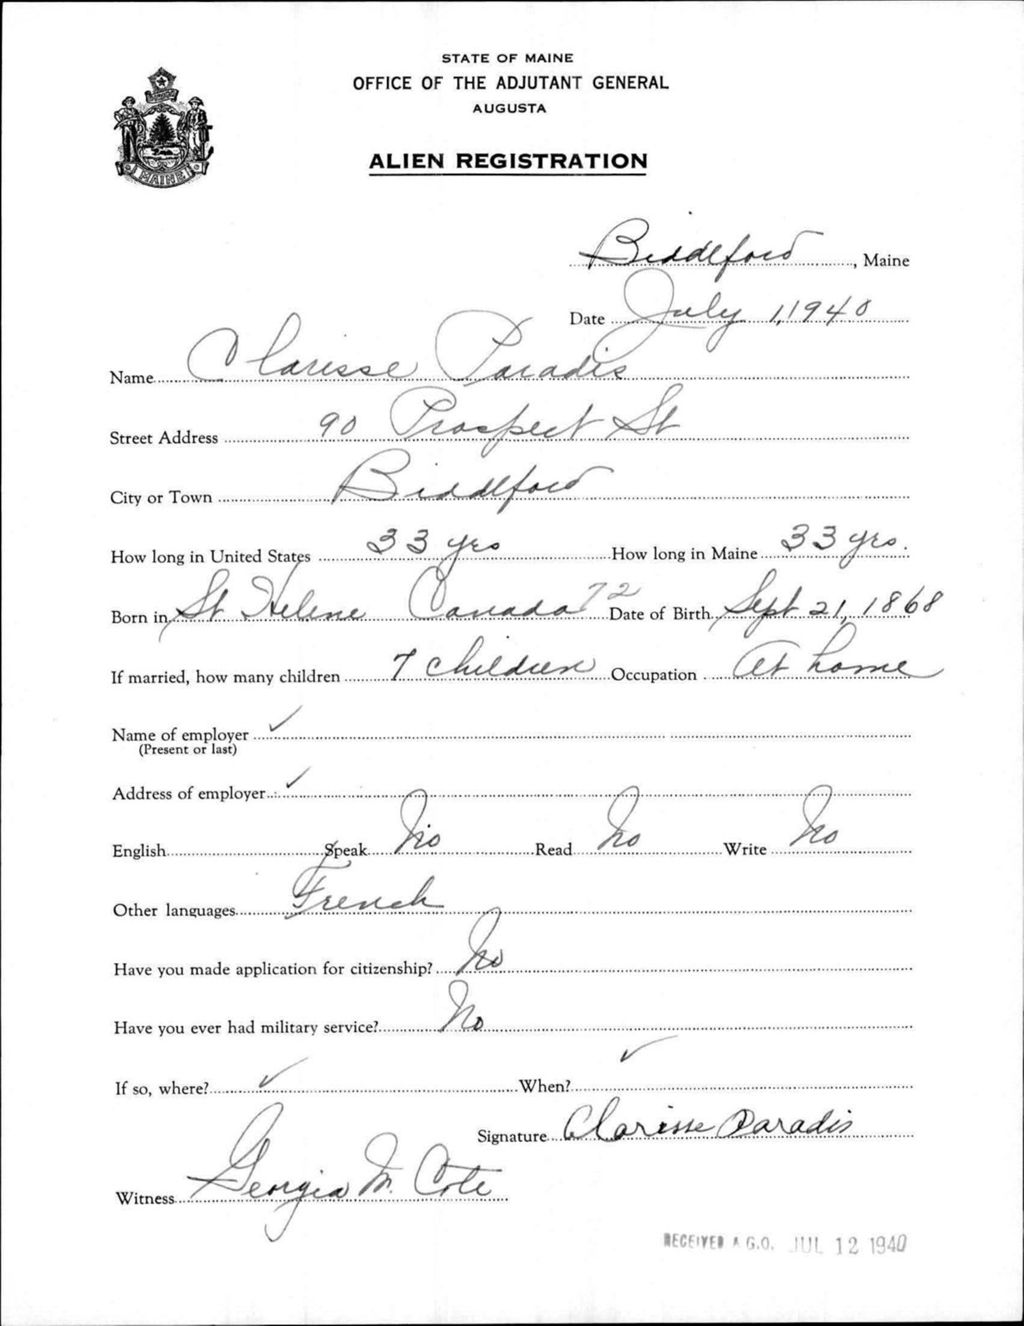 STATE OF MAINE
OFFICE OF THE ADJUTANT GENERAL
AUGUSTA
ALIEN REGISTRATION
MAINE
Biddeford, Maine
Date July 1, 1940
Name Clarisse Paradis
Street Address 90 Prospect St
City or Town Biddeford
How long in United States 33 yrs How long in Maine 33 yrs.
Born in St Helene Canada 72 Date of Birth Sept 21, 1868
If married, how many children 7 children Occupation At home
Name of employer ✓
(Present or last)
Address of employer ✓
English Speak No Read No Write No
Other languages French
Have you made application for citizenship? No
Have you ever had military service? No
If so, where? ✓ When? ✓
Signature Clarisse Paradis
Witness Georgia M. Cote
RECEIVED A.G.O. JUL 12 1940